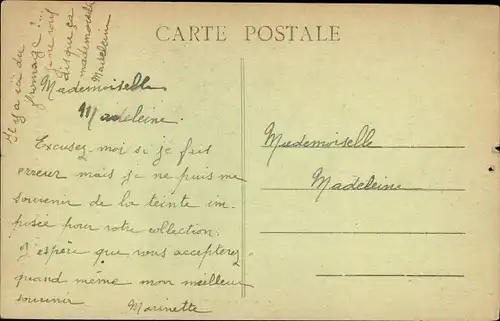 CARTE POSTALE
Il y a ici du
fromage !...
je ne vous
dis que ça
mademoiselle
Madeleine
Mademoiselle
Madeleine.
Excusez-moi si je fait
erreur mais je ne puis me
souvenir de la teinte im-
posée pour votre collection.
J'espère que vous accepterez
quand même mon meilleur
souvenir
Marinette
Mademoiselle
Madeleine